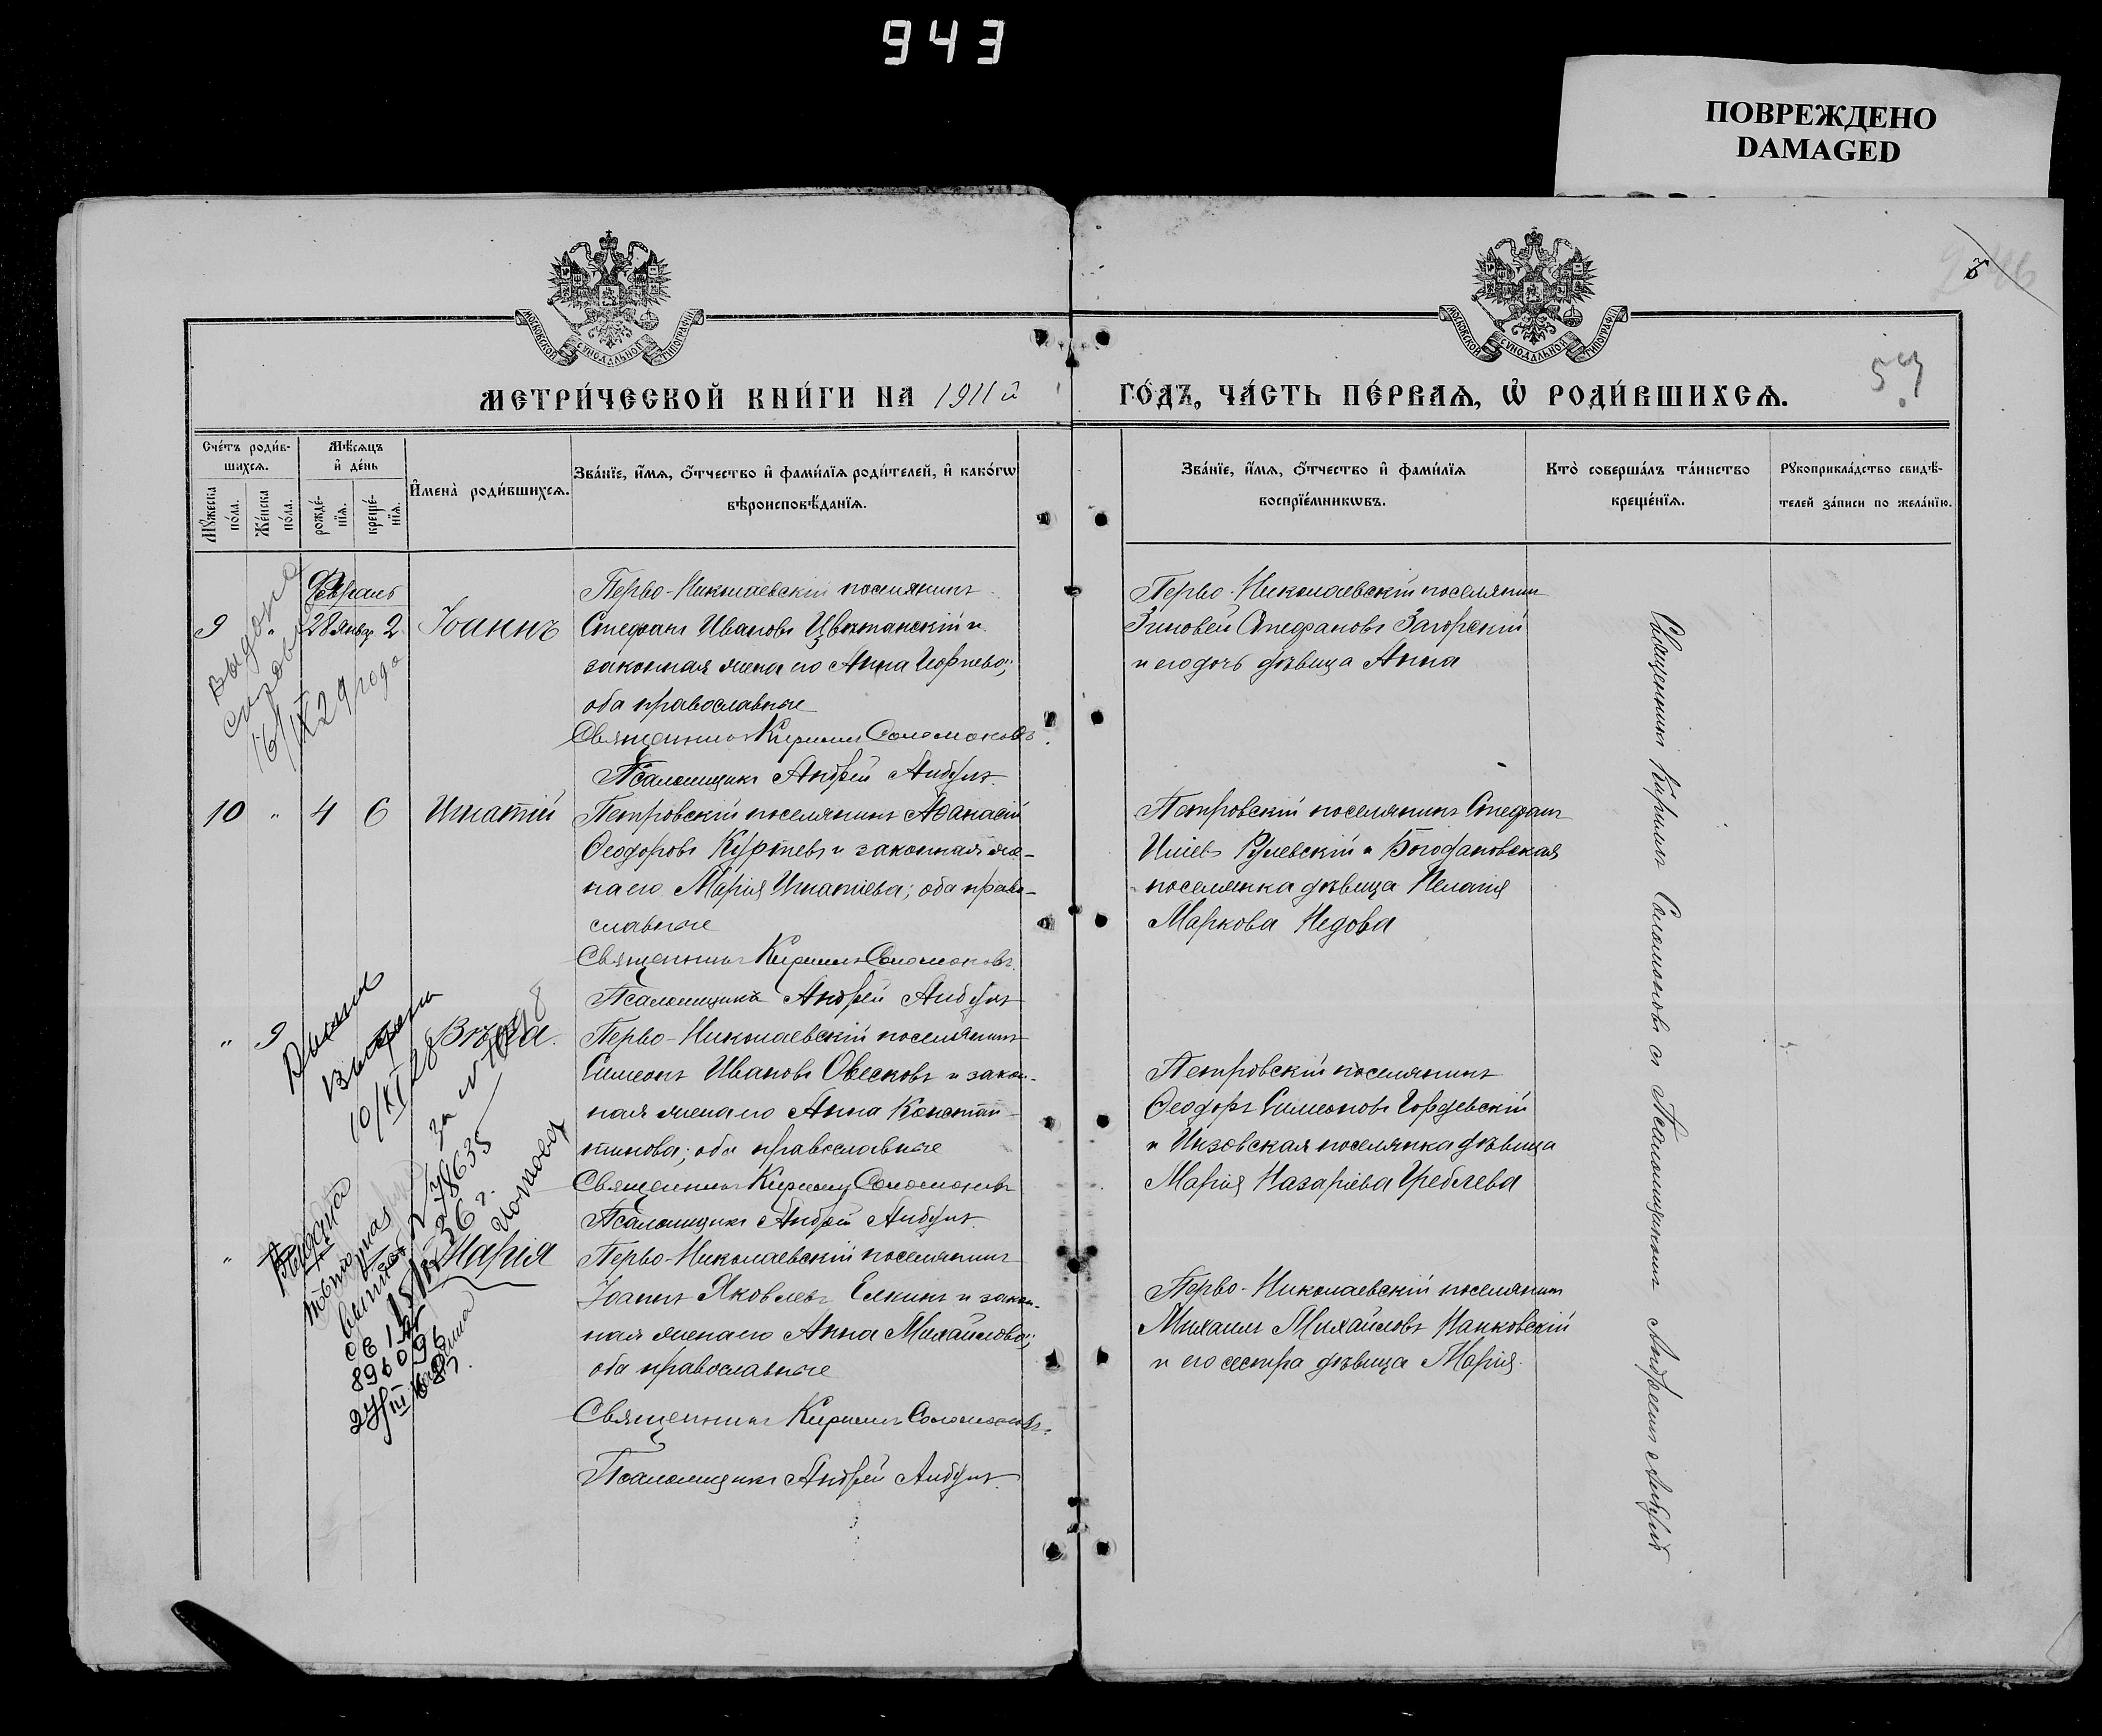 943
ПОВРЕЖДЕНО
DAMAGED
МОСКОВСКОЙ СѴНОДАЛЬНОЙ ТИПОГРАФІИ
МОСКОВСКОЙ СѴНОДАЛЬНОЙ ТИПОГРАФІИ
МЕТРИ́ЧЕСКОЙ КНИ́ГИ НА 1911й
ГО́ДЪ, ЧА́СТЬ ПЕ́РВАѦ, Ѡ҆ РОДИ́ВШИХСѦ.
57
Сче́тъ роди́в-
шихсѧ.
Мꙋ́жеска по́ла.
Же́нска по́ла.
Мѣ́сѧцъ
и҆ де́нь
рожде́-
нїѧ.
креще́-
нїѧ.
И҆мена̀ роди́вшихсѧ.
Зва́нїе, и҆́мѧ, ѻ҆́тчество и҆ фами́лїѧ роди́телей, и҆ како́гѡ
вѣроисповѣ́данїѧ.
Зва́нїе, и҆́мѧ, ѻ҆́тчество и҆ фами́лїѧ
воспрїе́мникѡвъ.
Кто̀ соверша́лъ та́инство
креще́нїѧ.
Рꙋкоприкла́дство свидѣ́-
телей за́писи по жела́нїю.
Февраль
9 " 28 янв. 2 Іоаннъ
Перво-Николаевскій поселянинъ
Стефанъ Ивановъ Цвѣтанскій и
законная жена его Анна Георгіева;
оба православные
Священникъ Кириллъ Соломоновъ
Псаломщикъ Андрей Анбулъ
Перво-Николаевскій поселянин
Зиновей Стефановъ Загорскій
и его дочь дѣвица Анна
Выдана
16/IX 29 года
10 " 4 6 Игнатій
Петровскій поселянинъ Аѳанасій
Ѳеодоровъ Куртевъ и законная же-
на его Марія Игнатіева; оба право-
славные
Священникъ Кириллъ Соломоновъ
Псаломщикъ Андрей Анбулъ
Петровскій поселянинъ Стефанъ
Иліевъ Рулевскій и Богдановская
поселянка дѣвица Пелагія
Маркова Недова
" 9
10/XI 28
Перво-Николаевскій поселянинъ
Симеонъ Ивановъ Овесковъ и закон-
ная жена его Анна Констан-
тинова; оба православные
Священникъ Кириллъ Соломоновъ
Псаломщикъ Андрей Анбулъ
Петровскій поселянинъ
Ѳеодоръ Симеоновъ Гордіевскій
и Инзовская поселянка дѣвица
Марія Назаріева Греблева
" Марія
Перво-Николаевскій поселянинъ
Іоаннъ Яковлевъ Елкинъ и закон-
ная жена его Анна Михайлова;
оба православные
Священникъ Кириллъ Соломоновъ
Псаломщикъ Андрей Анбулъ
Перво-Николаевскій поселянин
Михаилъ Михайловъ Нанковскій
и его сестра дѣвица Марія
896096
Священникъ Кириллъ Соломоновъ съ Псаломщикомъ Андреемъ Анбулъ